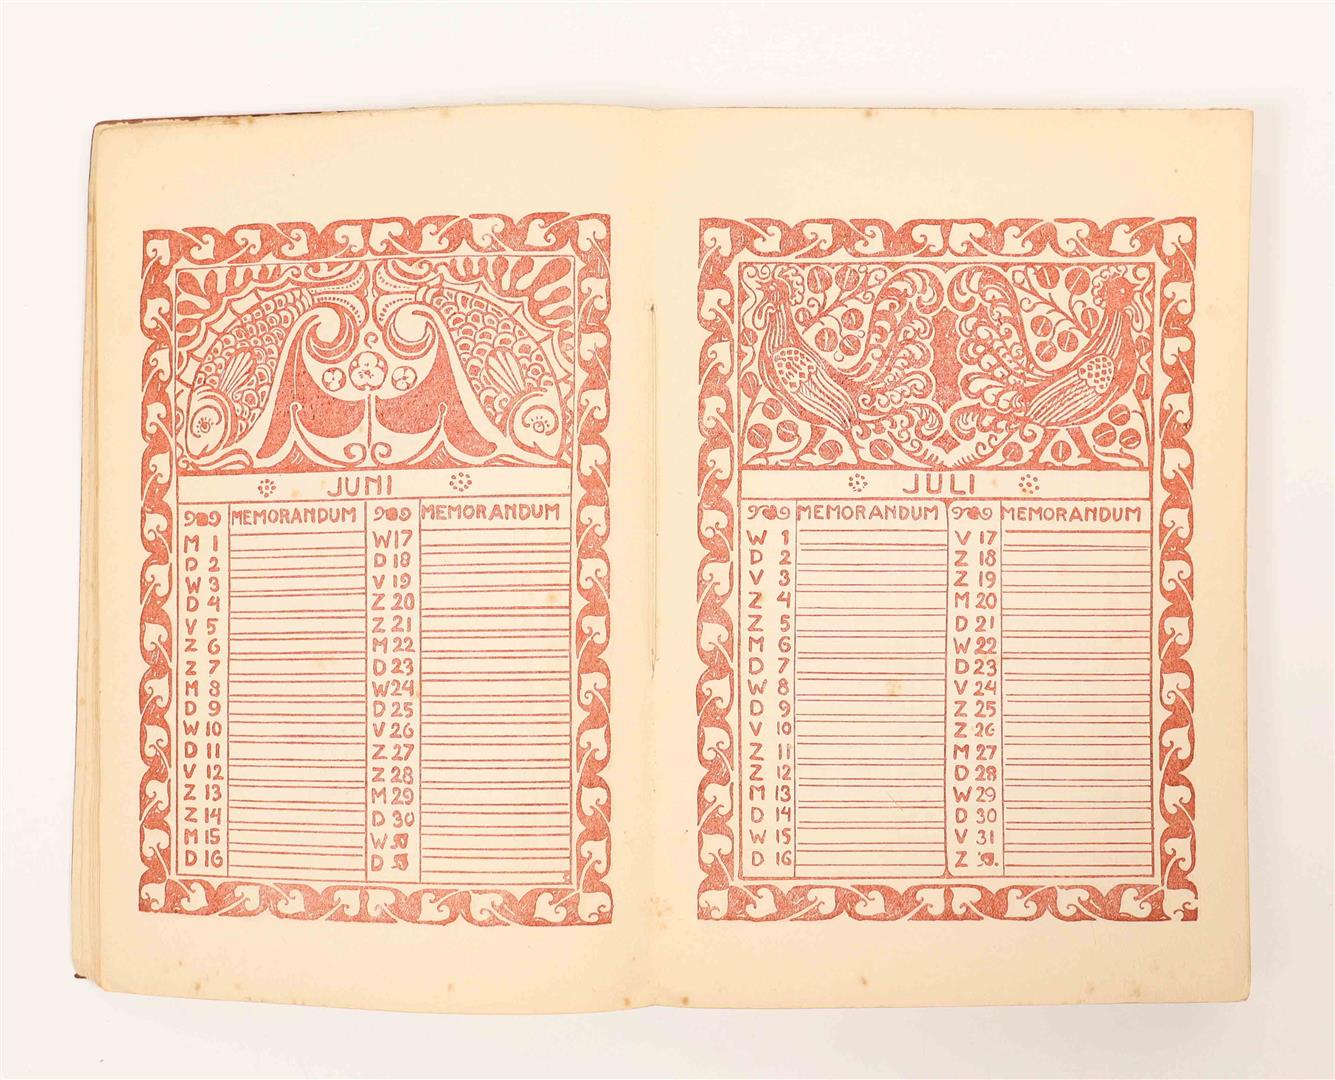 JUNI
MEMORANDUM
M 1
D 2
W 3
D 4
V 5
Z 6
Z 7
M 8
D 9
W 10
D 11
V 12
Z 13
Z 14
M 15
D 16
MEMORANDUM
W 17
D 18
V 19
Z 20
Z 21
M 22
D 23
W 24
D 25
V 26
Z 27
Z 28
M 29
D 30
W
D
JULI
MEMORANDUM
W 1
D 2
V 3
Z 4
Z 5
M 6
D 7
W 8
D 9
V 10
Z 11
Z 12
M 13
D 14
W 15
D 16
MEMORANDUM
V 17
Z 18
Z 19
M 20
D 21
W 22
D 23
V 24
Z 25
Z 26
M 27
D 28
W 29
D 30
V 31
Z